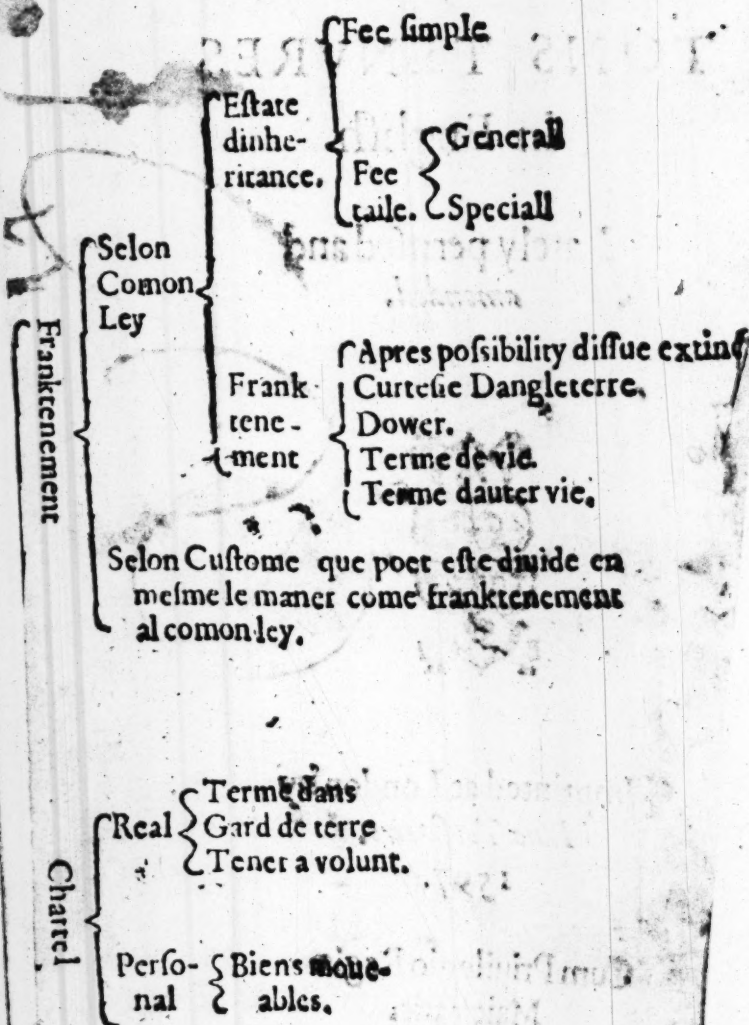 Franktenement
Selon
Comon
Ley
Eſtate
dinhe-
ritance.
Fee ſimple
Fee
taile.
Generall
Speciall
Frank
tene-
ment
Apres poſsibility diſſue extinct
Curteſie Dangleterre.
Dower.
Terme de vie.
Terme dauter vie.
Selon Cuſtome que poet eſte diuide en
meſme le maner come franktenement
al comon ley.
Chattel
Real
Terme dans
Gard de terre
Tener a volunt.
Perſo-
nal
Biens moue-
ables.